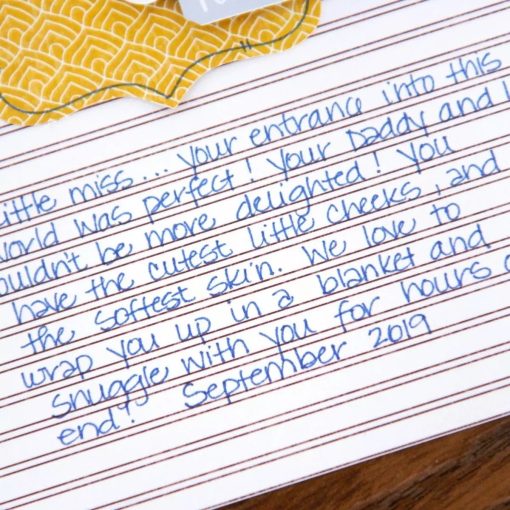 ittle miss.... your entrance into this
world was perfect! Your Daddy and I
ouldn't be more delighted! You
have the cutest little cheeks, and
the softest skin. We love to
wrap you up in a blanket and
snuggle with you for hours o
end! September 2019